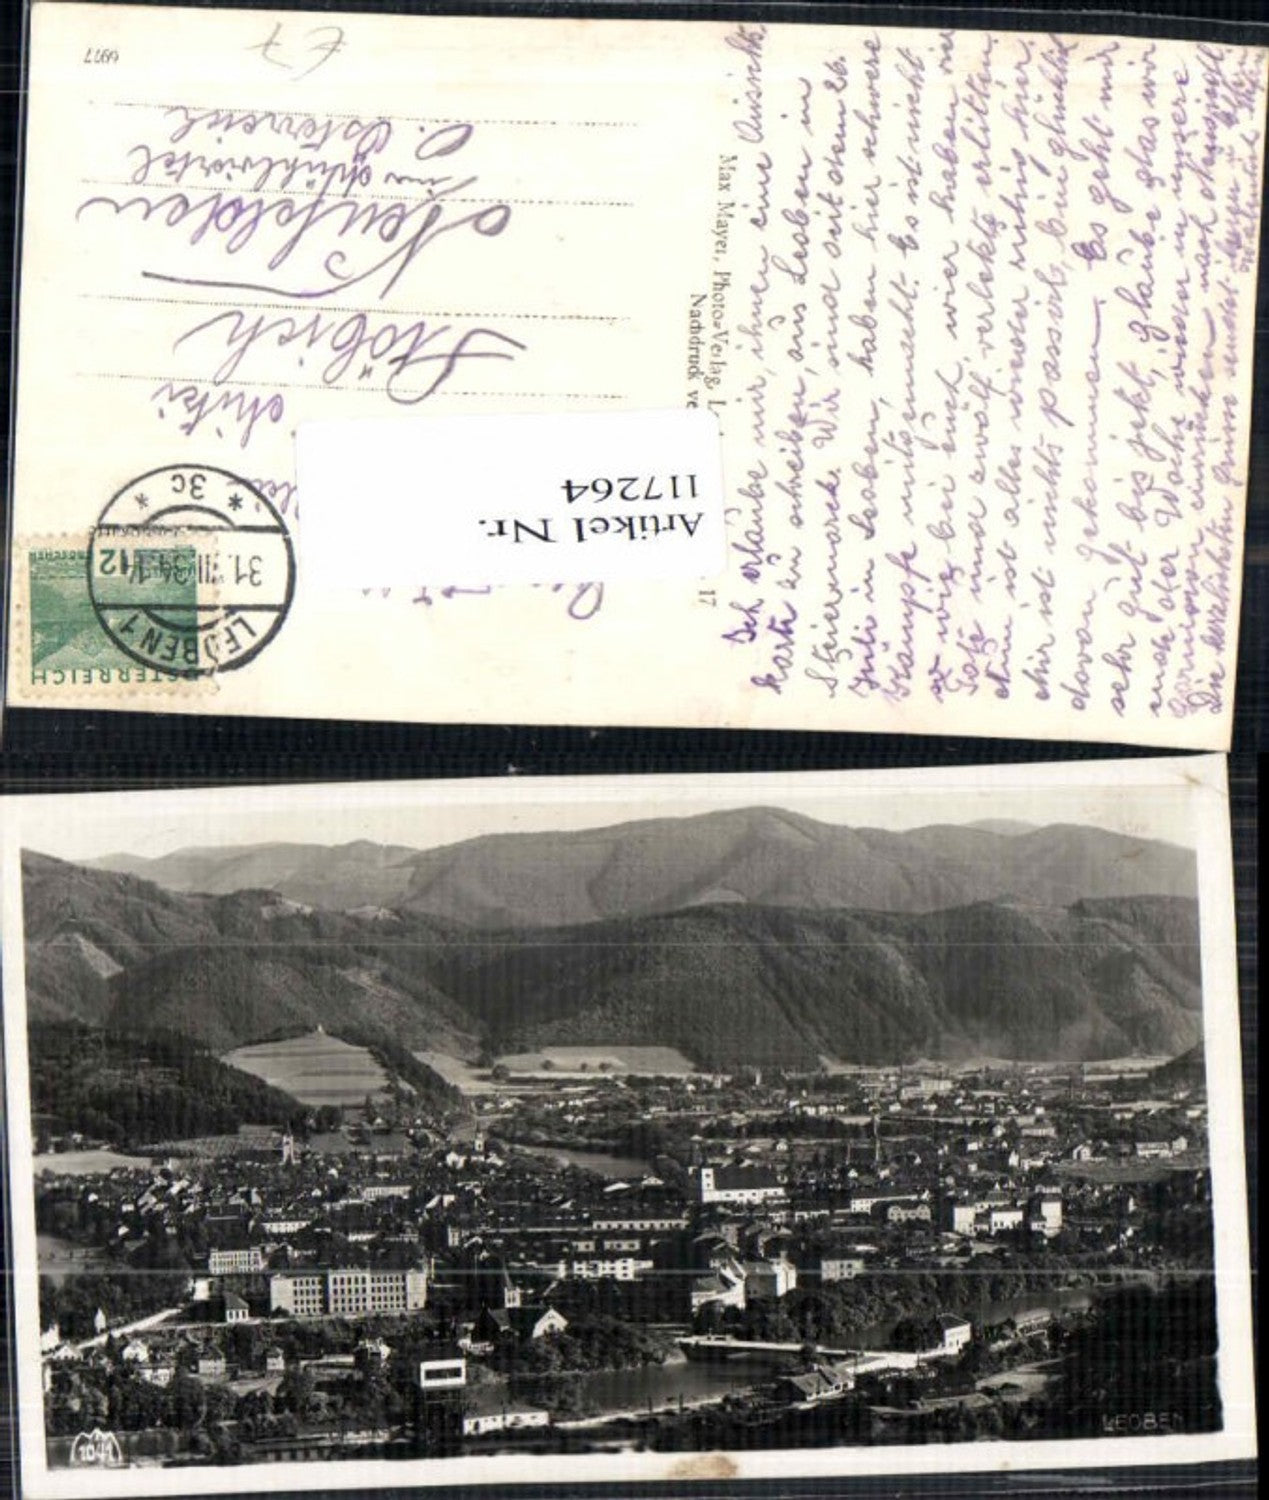 6977
E7
Neufelden
im Mühlviertel
O. Österreich
Stöbich
Mitzi
Artikel Nr.
117264
* 3c *
31. VII. 34.
LEOBEN 1
12
ÖSTERREICH
Max Mayer, Photo-Verlag, L
Nachdruck ve
17
Ich erlaube mir, ihnen eine Ansichts
karte zu schreiben, aus Leoben in
Steiermark. Wir sind seit dem 26.
Julio in Leoben, haben hier schwere
Kämpfe mitgemacht. Es ist nicht
so wie bei euch, wier haben vier
Tote und zwölf verletzte erlitten.
nun ist alles wieder ruhig hier.
Mir ist nichts passirt, bin glücklich
davon gekommen. Es geht mir
sehr gut bis jetzt, glaube das wir
ende der Woche wieder in unsere
Garnison einrücken nach
Die herzlichsten Grüsse sendet
LEOBEN
1041